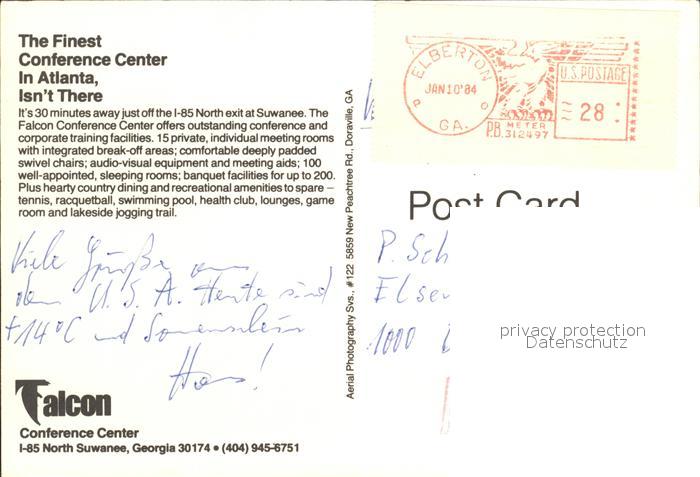 The Finest
Conference Center
In Atlanta,
Isn't There
It's 30 minutes away just off the I-85 North exit at Suwanee. The
Falcon Conference Center offers outstanding conference and
corporate training facilities. 15 private, individual meeting rooms
with integrated break-off areas; comfortable deeply padded
swivel chairs; audio-visual equipment and meeting aids; 100
well-appointed, sleeping rooms; banquet facilities for up to 200.
Plus hearty country dining and recreational amenities to spare –
tennis, racquetball, swimming pool, health club, lounges, game
room and lakeside jogging trail.
Viele Grüße aus
den U.S.A. Heute sind
+14°C und Sonnenschein
Falcon
Conference Center
I-85 North Suwanee, Georgia 30174 • (404) 945-6751
Aerial Photography Svs., #122 5859 New Peachtree Rd., Doraville, GA
ELBERTON
JAN 10 '84
GA.
U.S. POSTAGE
28
P.B. METER
312497
Post Card
P. Sch
Elser
1000
privacy protection
Datenschutz